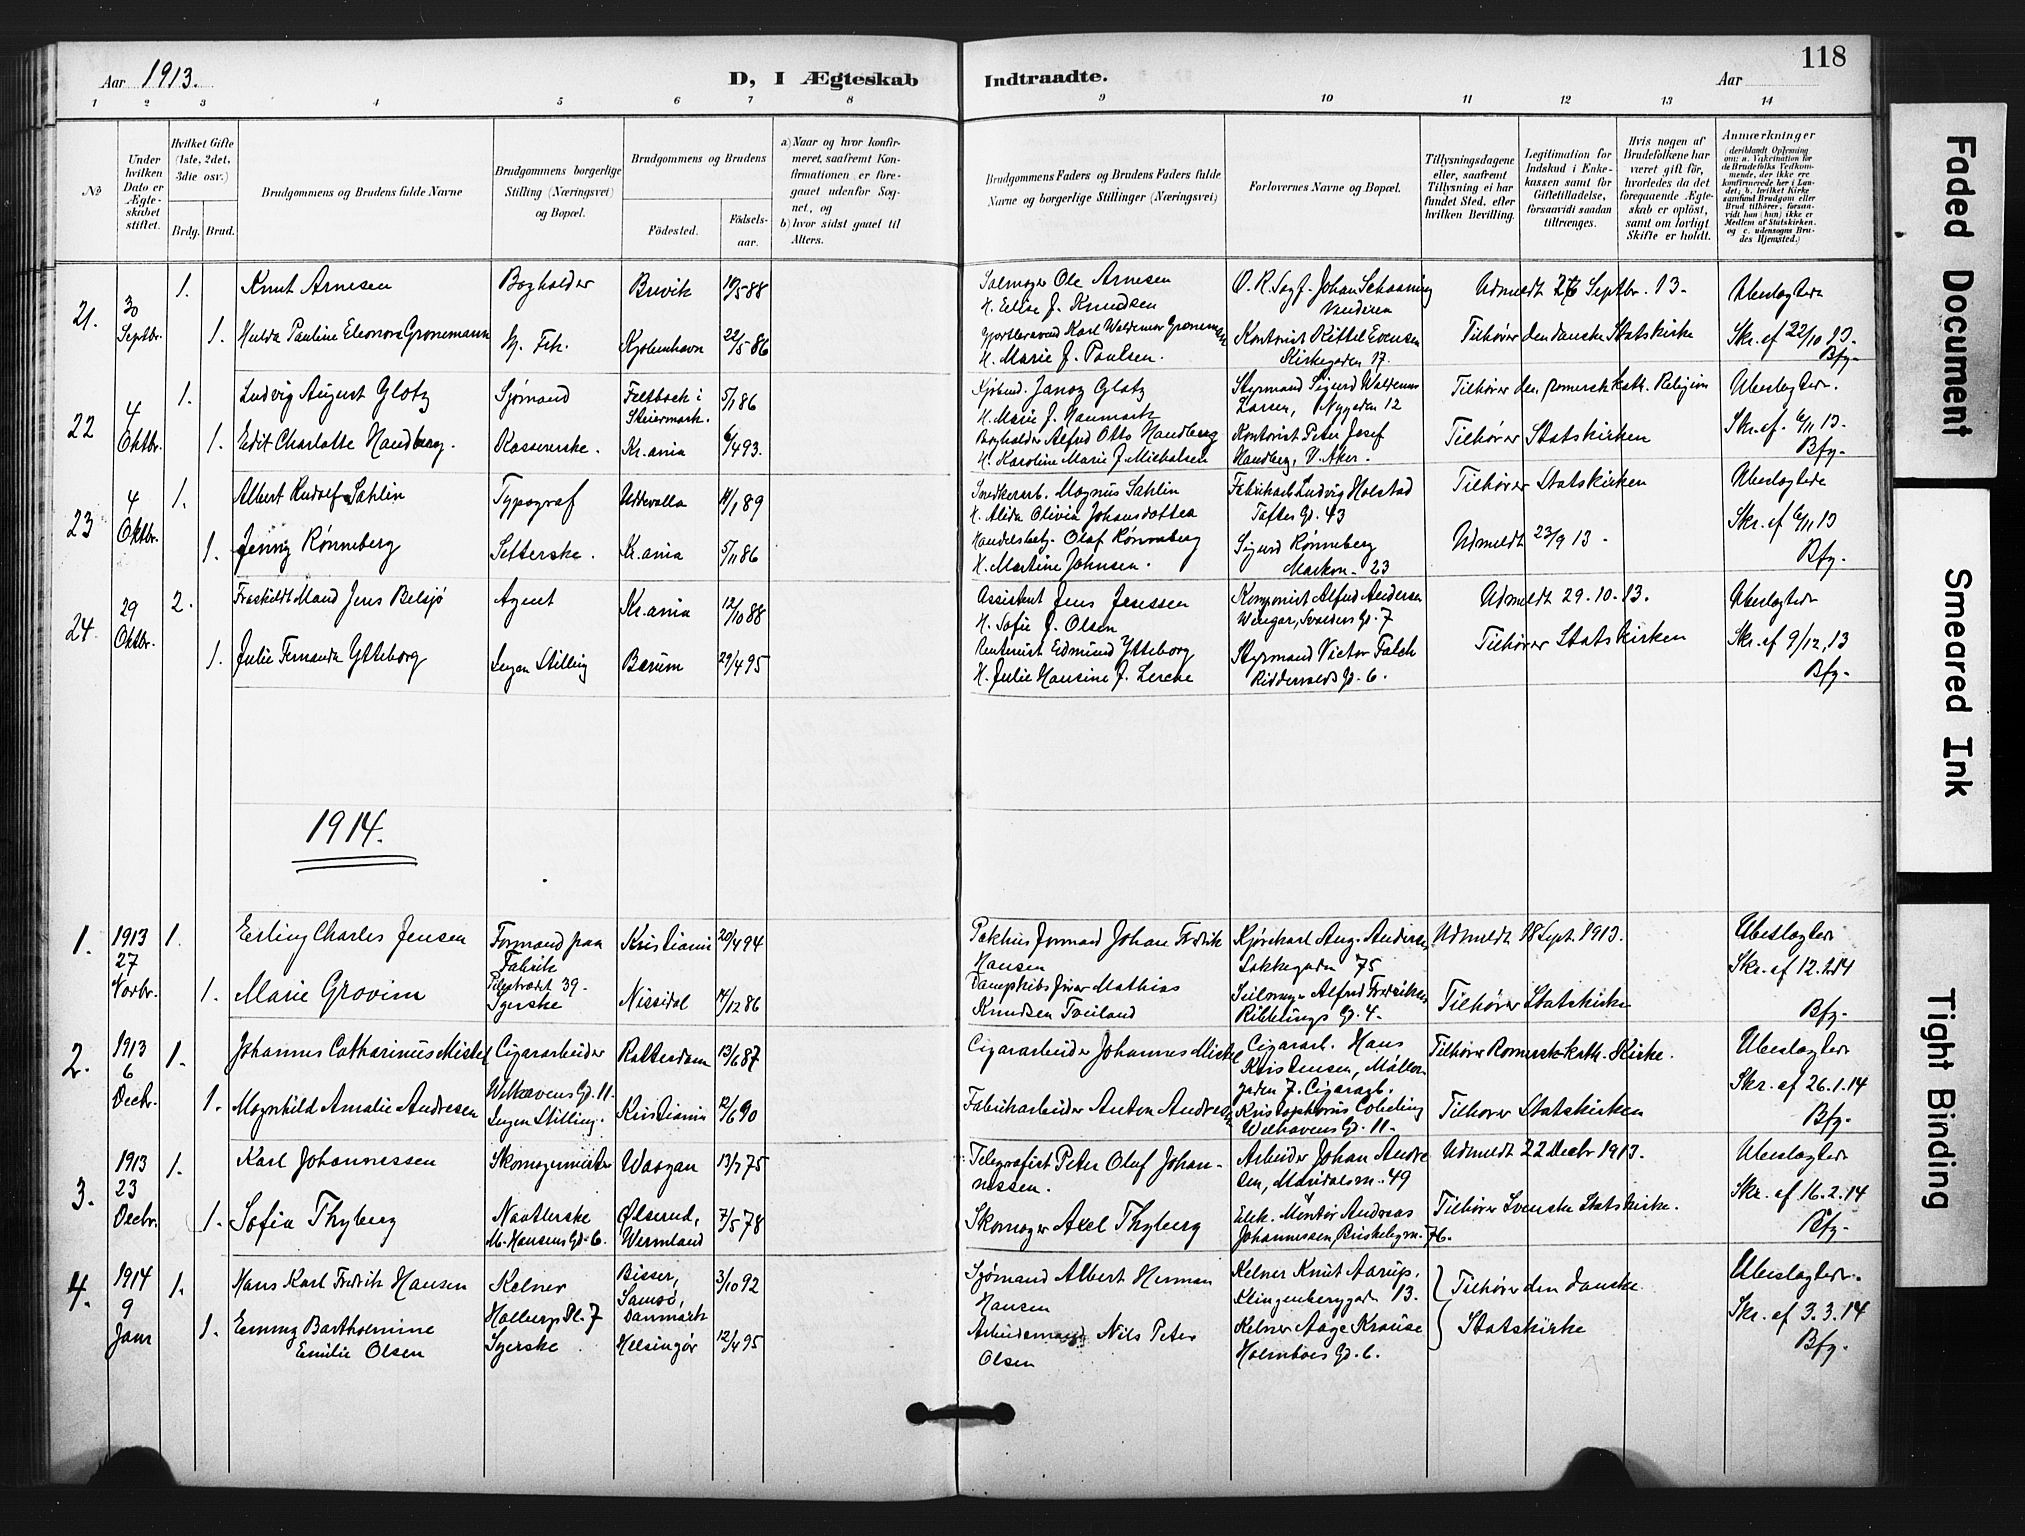 118
Aar 1913.
D, I Ægteskab Indtraadte.
Aar
1 2 3 4 5 6 7 8 9 10 11 12 13 14
No
Under hvilken Dato er Ægteskabet stiftet.
Hvilket Gifte (1ste, 2det, 3die osv.)
Brdg. Brud.
Brudgommens og Brudens fulde Navne
Brudgommens borgerlige Stilling (Næringsvei) og Bopæl.
Brudgommens og Brudens
Födested.
Födselsaar.
a) Naar og hvor konfirmeret, saafremt Konfirmationen er foregaaet udenfor Sognet, og
b) hvor sidst gaaet til Alters.
Brudgommens Faders og Brudens Faders fulde Navne og borgerlige Stillinger (Næringsvei)
Forlovernes Navne og Bopæl.
Tillysningsdagene eller, saafremt Tillysning ei har fundet Sted, efter hvilken Bevilling.
Legitimation for Indskud i Enkekassen samt for Giftetilladelse, forsaavidt saadan tiltrænges.
Hvis nogen af Brudefolkene har været gift før, hvorledes da det foregaaende Ægteskab er oplöst, samt om lovligt Skifte er holdt.
Anmærkninger
(deriblandt Oplysning om: a. Vakcination for de Brudefolks Vedkommende, der ikke ere konfirmerede her i Landet; b. hvilket Kirkesamfund Brudgom eller Brud tilhører, forsaavidt han (hun) ikke er Medlem af Statskirken, og c. udensogns Brudes Hjemsted.)
21. 30 Septbr. 1.
Knut Arnesen
Bogholder
Brevik
19/5 88
Salmager Ole Arnesen
H. Elise f. Knudsen
O. R. Sagf. Johan Schaaning
Vinderen
Udmeldt 26 Septbr. 13.
Ubeslægtede
1. Hulda Pauline Eleonora Gronemann
Frk.
Kjøbenhavn
22/5 86
Karl Waldemar Gronemann
H. Marie f. Paulsen.
Kontorist Kittel Evensen
Kirkegaden 17.
Tilhører den danske Statskirke
Skr. af 22/10 13.
Bfg.
22 4 Oktbr. 1.
Ludvig August Glotz
Sjømand
Feltbach i
Steiermark.
5/1 86
Kjøbmd. Janoz Glotz
H. Marie f. Naumark
Styrmand Sigurd Waldemar
Larsen, Nygaden 12
Tilhører den romersk kath. Religion
Ubeslægtede.
1. Edit Charlotte Handberg.
Kassererske.
Kr.ania
6/4 93.
Bogholder Alfred Otto Handberg
H. Karoline Marie f. Michalsen
Kontorist Peter Josef
Handberg, V. Aker.
Tilhører Statskirken
Skr. af. 6/11 13
Bfg.
23 4 Oktbr. 1.
Albert Rudolf Sahlin
Typograf
Uddevalla
11/1 89
Snedkerarb. Magnus Sahlin
H. Alida Olivia Johansdotter
Fabrikarb. Ludvig Holstad
Toftes Gd. 43
Tilhører Statskirken
Ubeslægtede
1. Jenny Rønneberg
Setterske.
Kr.ania
5/11 86
Handelsbetj. Olaf Rønneberg
H. Martine Johnsen.
Sigurd Rønneberg
Markvn. 23
Udmeldt 23/9 13.
Skr. af 6/11 13
Bfg.
24. 29 Oktbr. 2.
Fraskildt Mand Jens Belsjø
Agent
Kr.ania
12/10 88
Assistent Jens Jenssen
H. Sofie f. Olsen
Komponist Alfred Andersen
Wingar, Svoldens Gd. 7
Udmeldt 29.10.13.
Ubeslægtede
1. Julie Fernanda Ytteborg
Ingen Stilling
Bærum
29/4 95
Rentenist Edmund Ytteborg
H. Julie Hansine f. Lerche
Styrmand Victor Falch
Riddervolds Gd. 6.
Tilhører Statskirken
Skr. af 9/12, 13
Bfg.
1914.
1. 1913 27 Novbr. 1.
Erling Charles Jensen
Formand paa
Fabrik
Pilestrædet 39.
Kristiania
20/4 94
Pakhusformand Johan Fredrik
Hansen
Kjørekarl Aug. Andersen
Løkkegaden 75
Udmeldt 18 Sept. 1913.
Ubeslægtede
1. Marie Grovim
Syerske
Nissedal
14/12 86
Dampskibsfører Mathias
Knudsen Treiland
Seilmager Alfred Fredriksen
Ribbtings Gd. 4.
Tilhører Statskirke
Skr. af 12.1.14
Bfg.
2. 1913 6 Decbr. 1.
Johannes Catharinus Mistel
Cigararbeider
Welhavens Gd. 11.
Rotterdam
13/6 87
Cigararbeider Johannes Mistel
Cigararb. Hans
Kristensen, Møllergaden 7. Cigararb.
Tilhører Romersk kath. Kirke.
Ubeslægtede
1. Magnhild Amalie Andresen
Ingen Stilling.
Kristiania
12/6 90
Fabrikarbeider Anton Andresen
Welhavens Gd. 11.
Tilhører Statskirken
Skr. af 26.1.14
Bfg.
3. 1913 23 Decbr. 1.
Karl Johannessen
Skomagermester
Waagan
13/7 75
Telegrafist Peter Oluf Johannessen.
Arbeider Johan Andresen, Maridalsvn. 49
Udmeldt 22 Decbr 1913.
Ubeslægtede
1. Sofia Thyberg
Naatlerske
M. Hansens Gd. 6.
Ølserud,
Wermland
7/5 78
Skomager Axel Thyberg
Elek. Montør Andreas
Johannessen, Briskebyvn. 76.
Tilhører Svenske Statskirke.
Skr. af 16.2.14
Bfg.
4. 1914 9 Janr 1.
Hans Karl Fredrik Hansen
Kelner
Holbergs Pl. 7
Bisser,
Samsø,
Danmark
3/10 92
Sjømand Albert Herman
Hansen
Kelner Knut Aarup,
Klingenberggaden 13.
Tilhører den danske
Statskirke
Ubeslægtede.
1. Emmy Bartholmine
Emilie Olsen
Syerske
Helsingør
12/4 95
Arbeidsmand Nils Peter
Olsen
Kelner Aage Krause
Holmboes Gd. 6.
Skr. af 3.3.14
Bfg.
Faded Document
Smeared Ink
Tight Binding